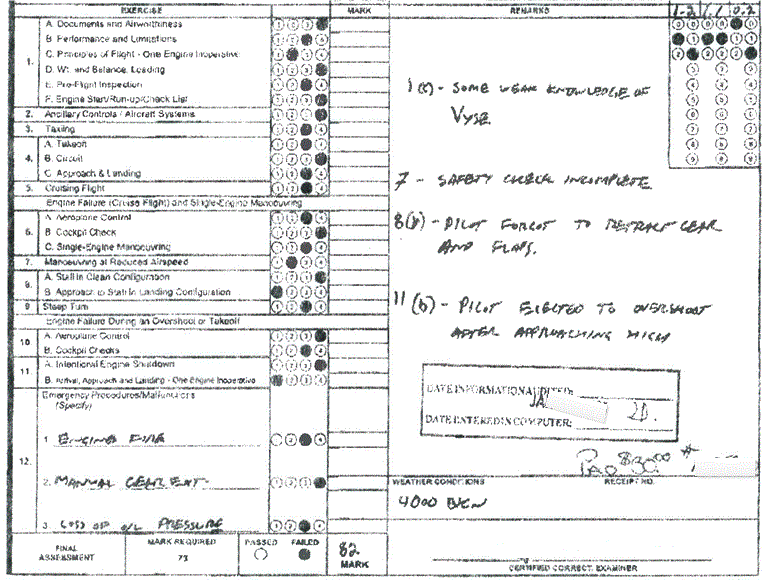 EXERCISE MARK REMARKS
1-2 1,1 0,2
A. Documents and Airworthiness
B. Performance and Limitations
1. C. Principles of Flight - One Engine Inoperative
D. Wt. and Balance, Loading
E. Pre-Flight Inspection
F. Engine Start/Run-up/Check List
2. Ancillary Controls / Aircraft Systems
3. Taxiing
A. Takeoff
4. B. Circuit
C. Approach & Landing
5. Cruising Flight
Engine Failure (Cruise Flight) and Single-Engine Manoeuvring
A. Aeroplane Control
6. B. Cockpit Check
C. Single-Engine Manoeuvring
7. Manoeuvring at Reduced Airspeed
8. A. Stall in Clean Configuration
B. Approach to Stall in Landing Configuration
9 Steep Turn
Engine Failure During an Overshoot or Takeoff
10 A. Aeroplane Control
B. Cockpit Checks
11 A. Intentional Engine Shutdown
B. Arrival, Approach and Landing - One Engine Inoperative
Emergency Procedures/Malfunctions
(Specify)
12.
1. ENGINE FIRE
2. MANUAL GEAR EXT
3. LOSS OF OIL PRESSURE
FINAL ASSESSMENT
MARK REQUIRED
PASSED FAILED
82 MARK
1(c) - SOME WEAK KNOWLEDGE OF
VYSE.
7 - SAFETY CHECK INCOMPLETE
8(b) - PILOT FORGOT TO RETRACT GEAR
AND FLAPS.
11(b) - PILOT ELECTED TO OVERSHOOT
AFTER APPROACHING HIGH
DATE INFORMATION AUDITED:
JA 20
DATE ENTERED IN COMPUTER:
PAID $30.00 #
WEATHER CONDITIONS RECEIPT NO.
4000 BKN
CERTIFIED CORRECT, EXAMINER